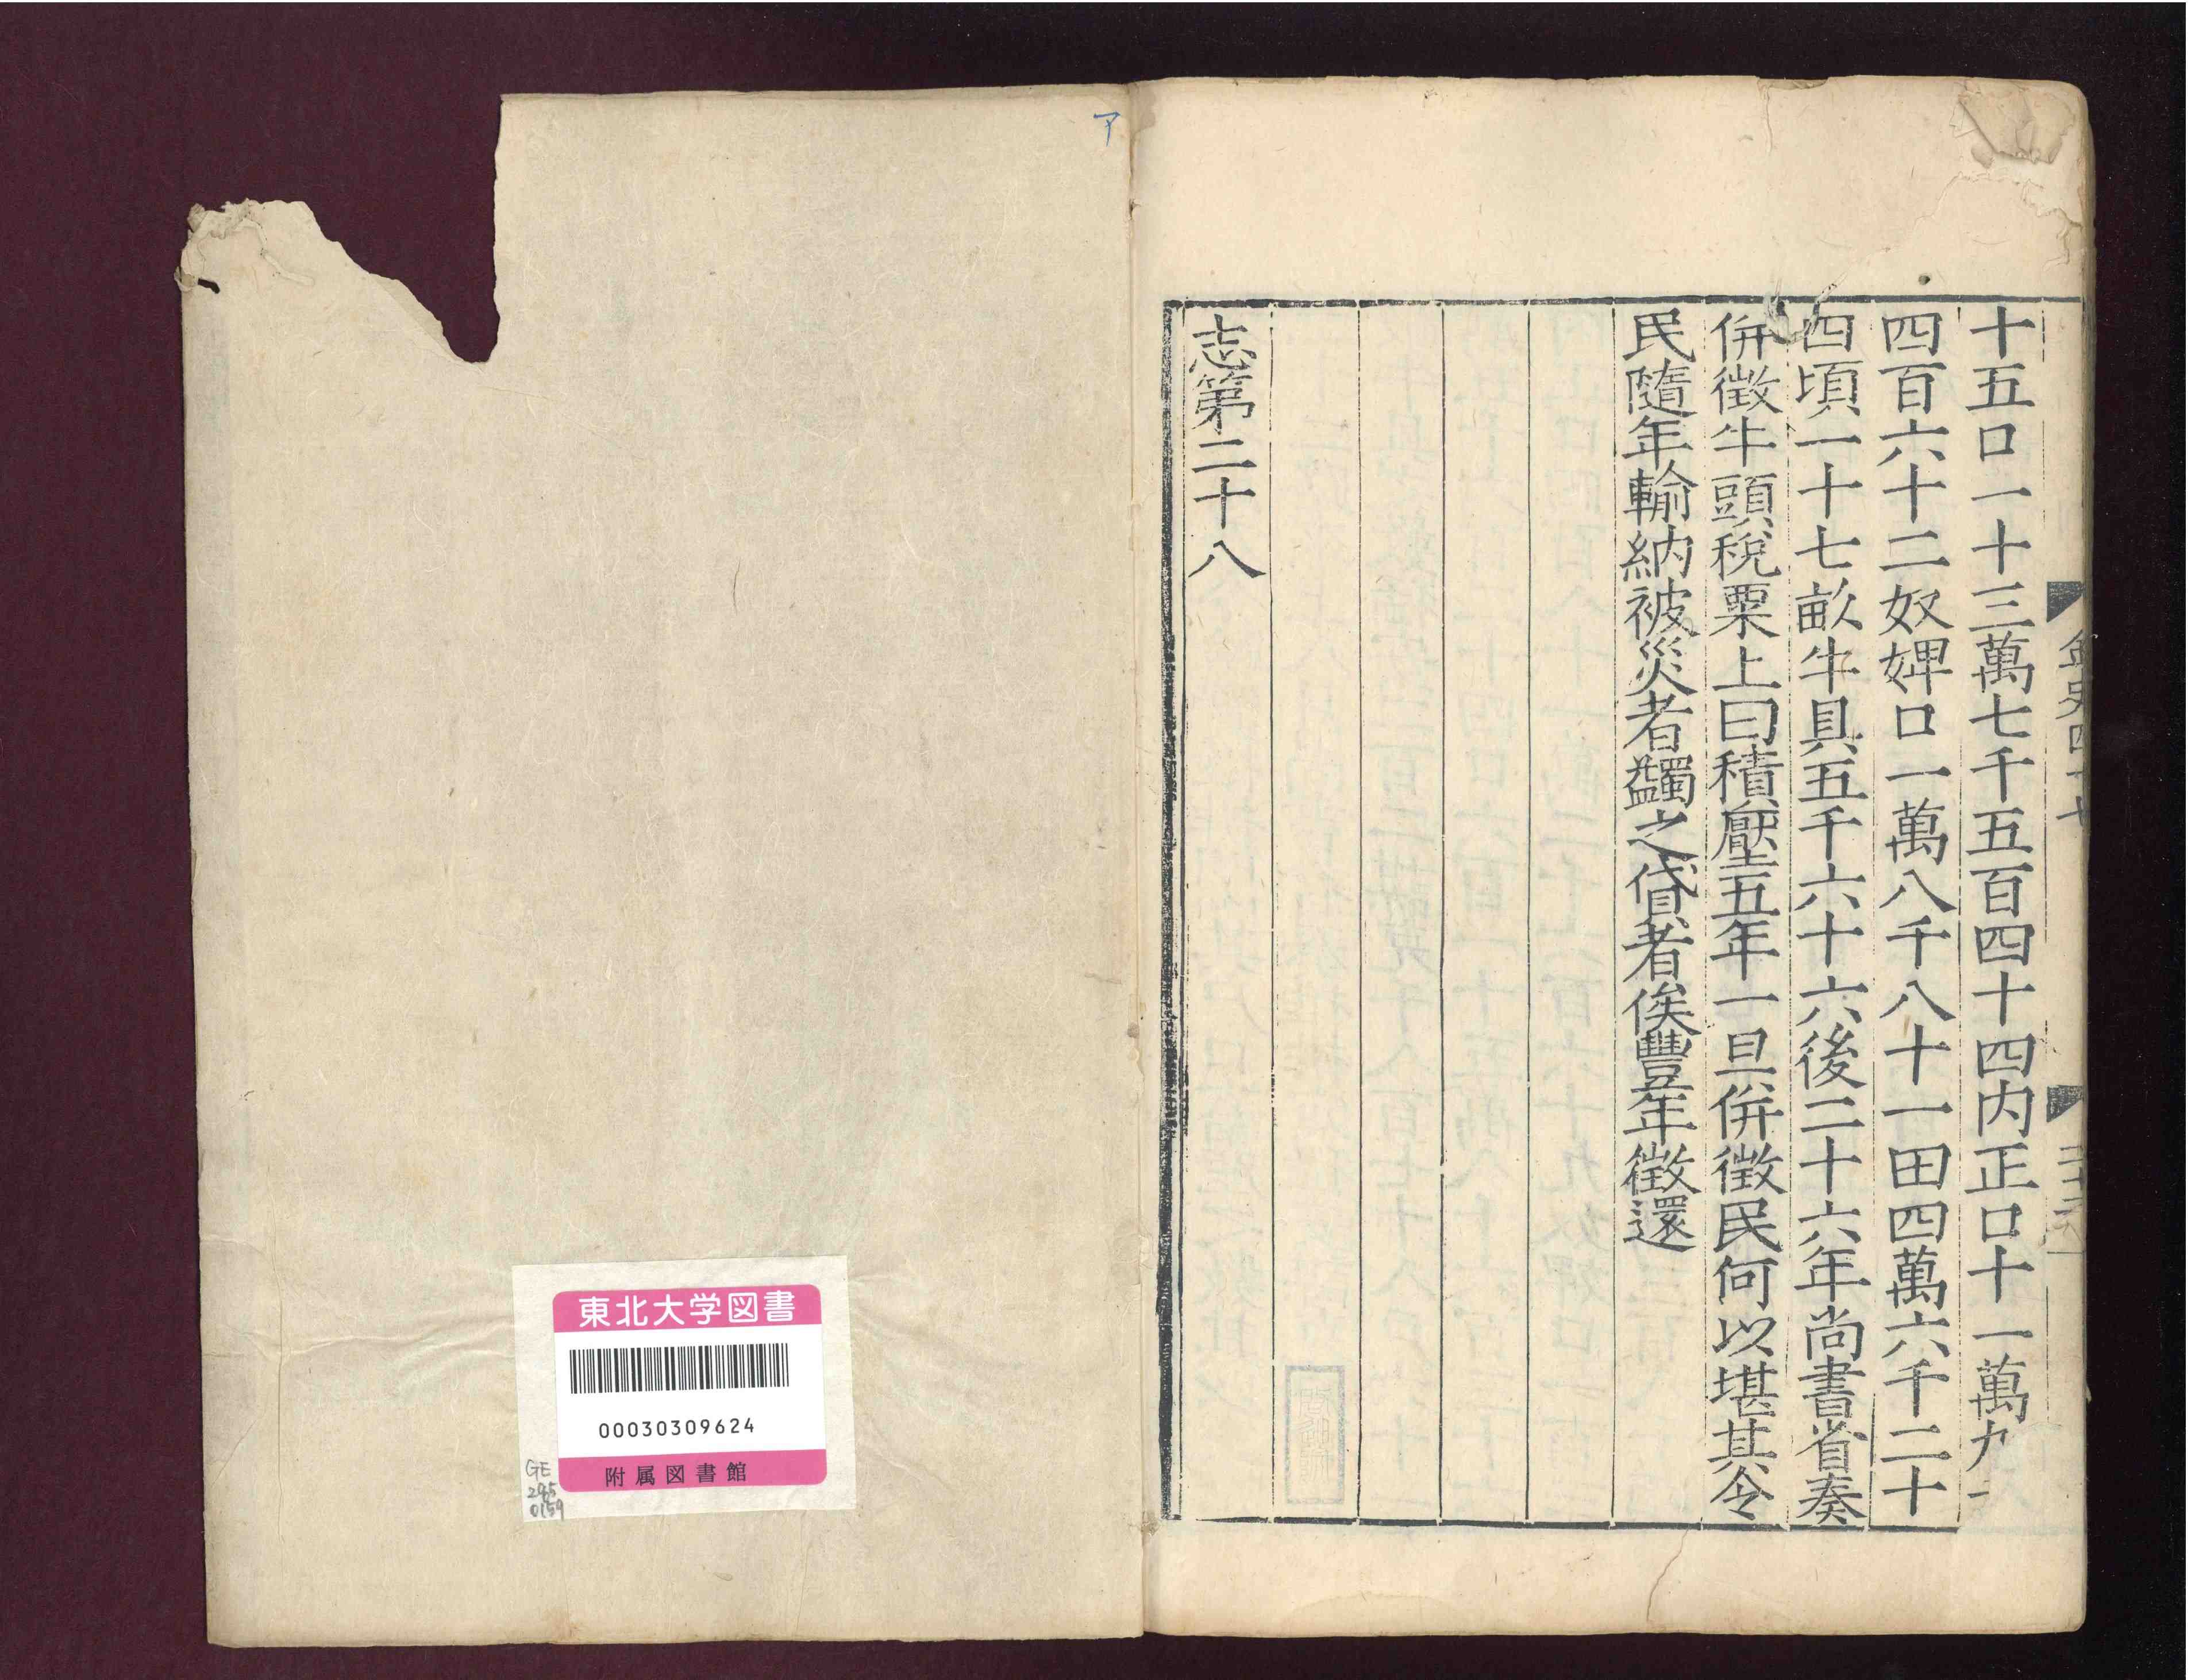 金史四十七
十五口一十三萬七千五百四十四内正口十一萬九
四百六十二奴婢口一萬八千八十一田四萬六千二十
四頃一十七畝牛具五千六十六後二十六年尚書省奏
併徴牛頭稅粟上曰積壓五年一旦併徴民何以堪其令
民隨年輸納被災者蠲之貸者俟豐年徴還
志第二十八
ア
東北大学図書
00030309624
附属図書館
GE
295
0159